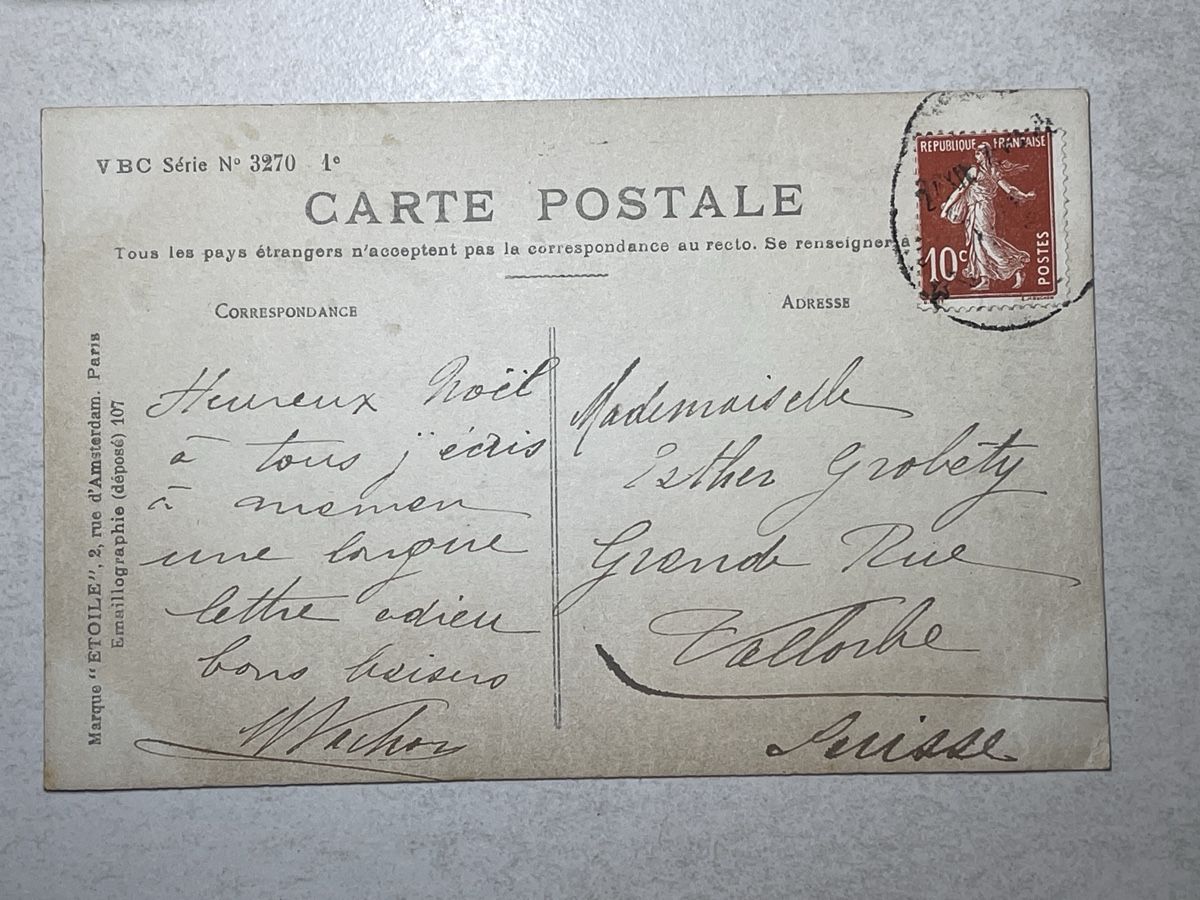 VBC Série Nº 3270 1e
CARTE POSTALE
Tous les pays étrangers n'acceptent pas la correspondance au recto. Se renseigner à
REPUBLIQUE FRANÇAISE
10c
POSTES
CORRESPONDANCE
ADRESSE
Marque "ETOILE", 2, rue d'Amsterdam. Paris
Emaillographie (déposé) 107
Heureux Noël
à tous j'écris
à
une longue
lettre adieu
bons baisers
Mademoiselle
Esther Grobéty
Grande Rue
Vallorbe
Suisse